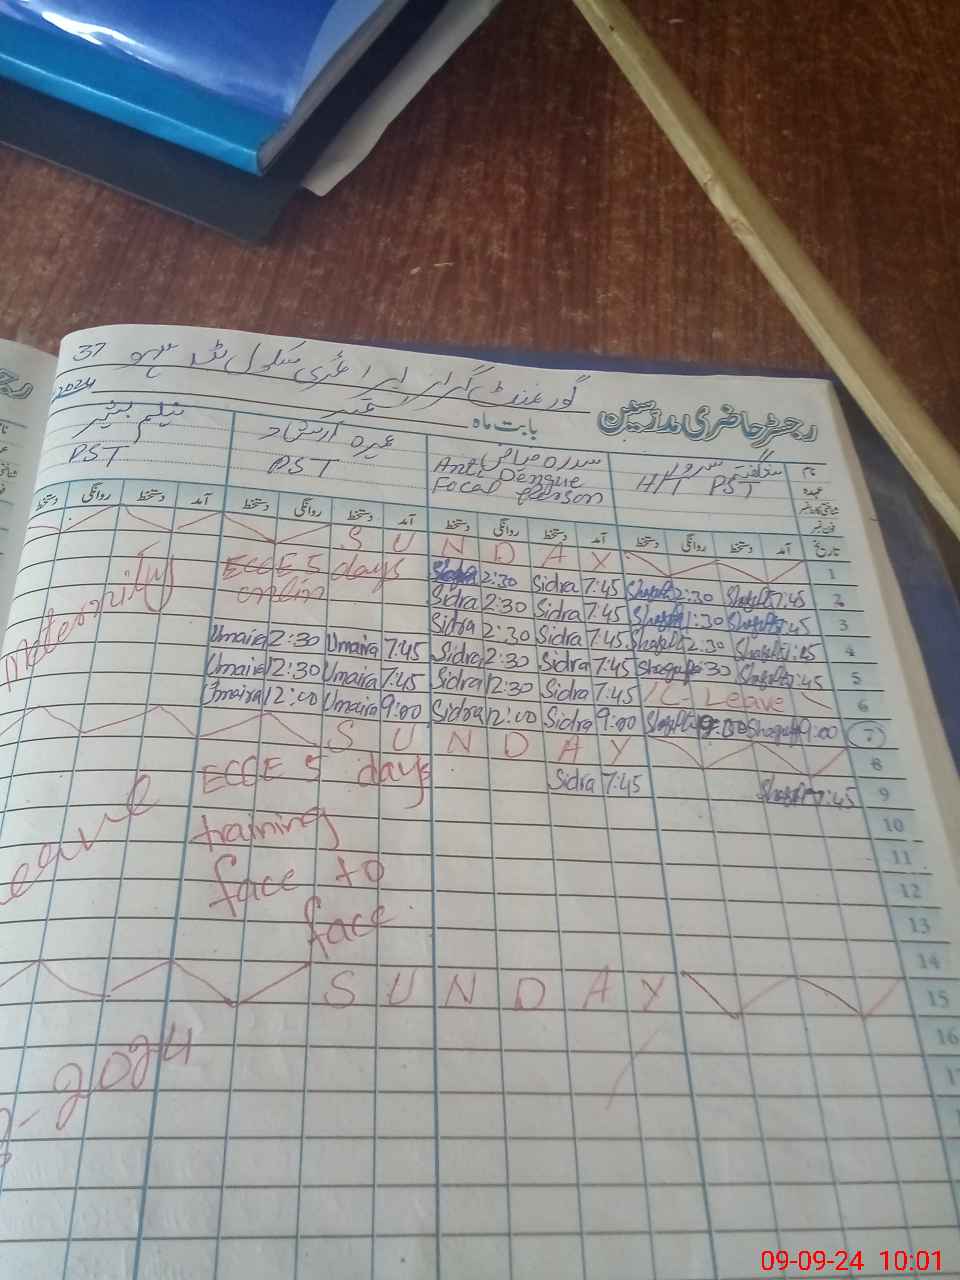 37
گورنمنٹ گرلز ایلیمنٹری سکول
2024
رجسٹر حاضری مدرسین
بابت ماہ ستمبر
نام شگفتہ سرور سدرہ ریاض عمیرہ ارشاد نیلم بشیر
عہدہ H/T PST Anti Dengue Focal Person PST PST
شناختی کارڈ نمبر
فون نمبر
تاریخ آمد دستخط روانگی دستخط آمد دستخط روانگی دستخط آمد دستخط روانگی دستخط آمد دستخط روانگی دستخط
SUNDAY 1
ECCE 5 days 2:30 Sidra 7:45 Shagufta 2:30 Shagufta 7:45 2
onlin Sidra 2:30 Sidra 7:45 Shagufta 1:30 Shagufta 7:45 3
Umaira 2:30 Umaira 7:45 Sidra 2:30 Sidra 7:45 Shagufta 2:30 Shagufta 7:45 4
Umaira 12:30 Umaira 7:45 Sidra 2:30 Sidra 7:45 Shagufta Shagufta 7:45 5
Umaira 12:00 Umaira 9:00 Sidra 12:30 Sidra 7:45 Leave 6
Sidra 12:00 Sidra 9:00 Shagufta Shagufta 9:00 7
Maternity
SUNDAY 8
ECCE 5 days Sidra 7:45 Shagufta 7:45 9
training 10
face to 11
face 12
13
14
Leave
SUNDAY 15
16
2024
09-09-24 10:01